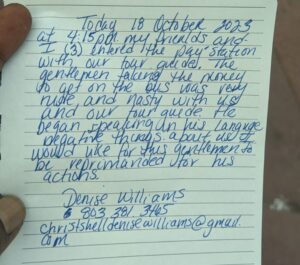 Today 18 October 2023
at 4:15pm my friends and
I (3) entered the pay station
with our tour guide. The
gentlemen taking the money
to get on the bus was very
rude, and nasty with us
and our tour guide. He
began speaking in his language
negative things about me. I
would like for this gentlemen to
be reprimanded for his
actions.
Denise Williams
803 381 3465
christshelldenisewilliams@gmail.
com